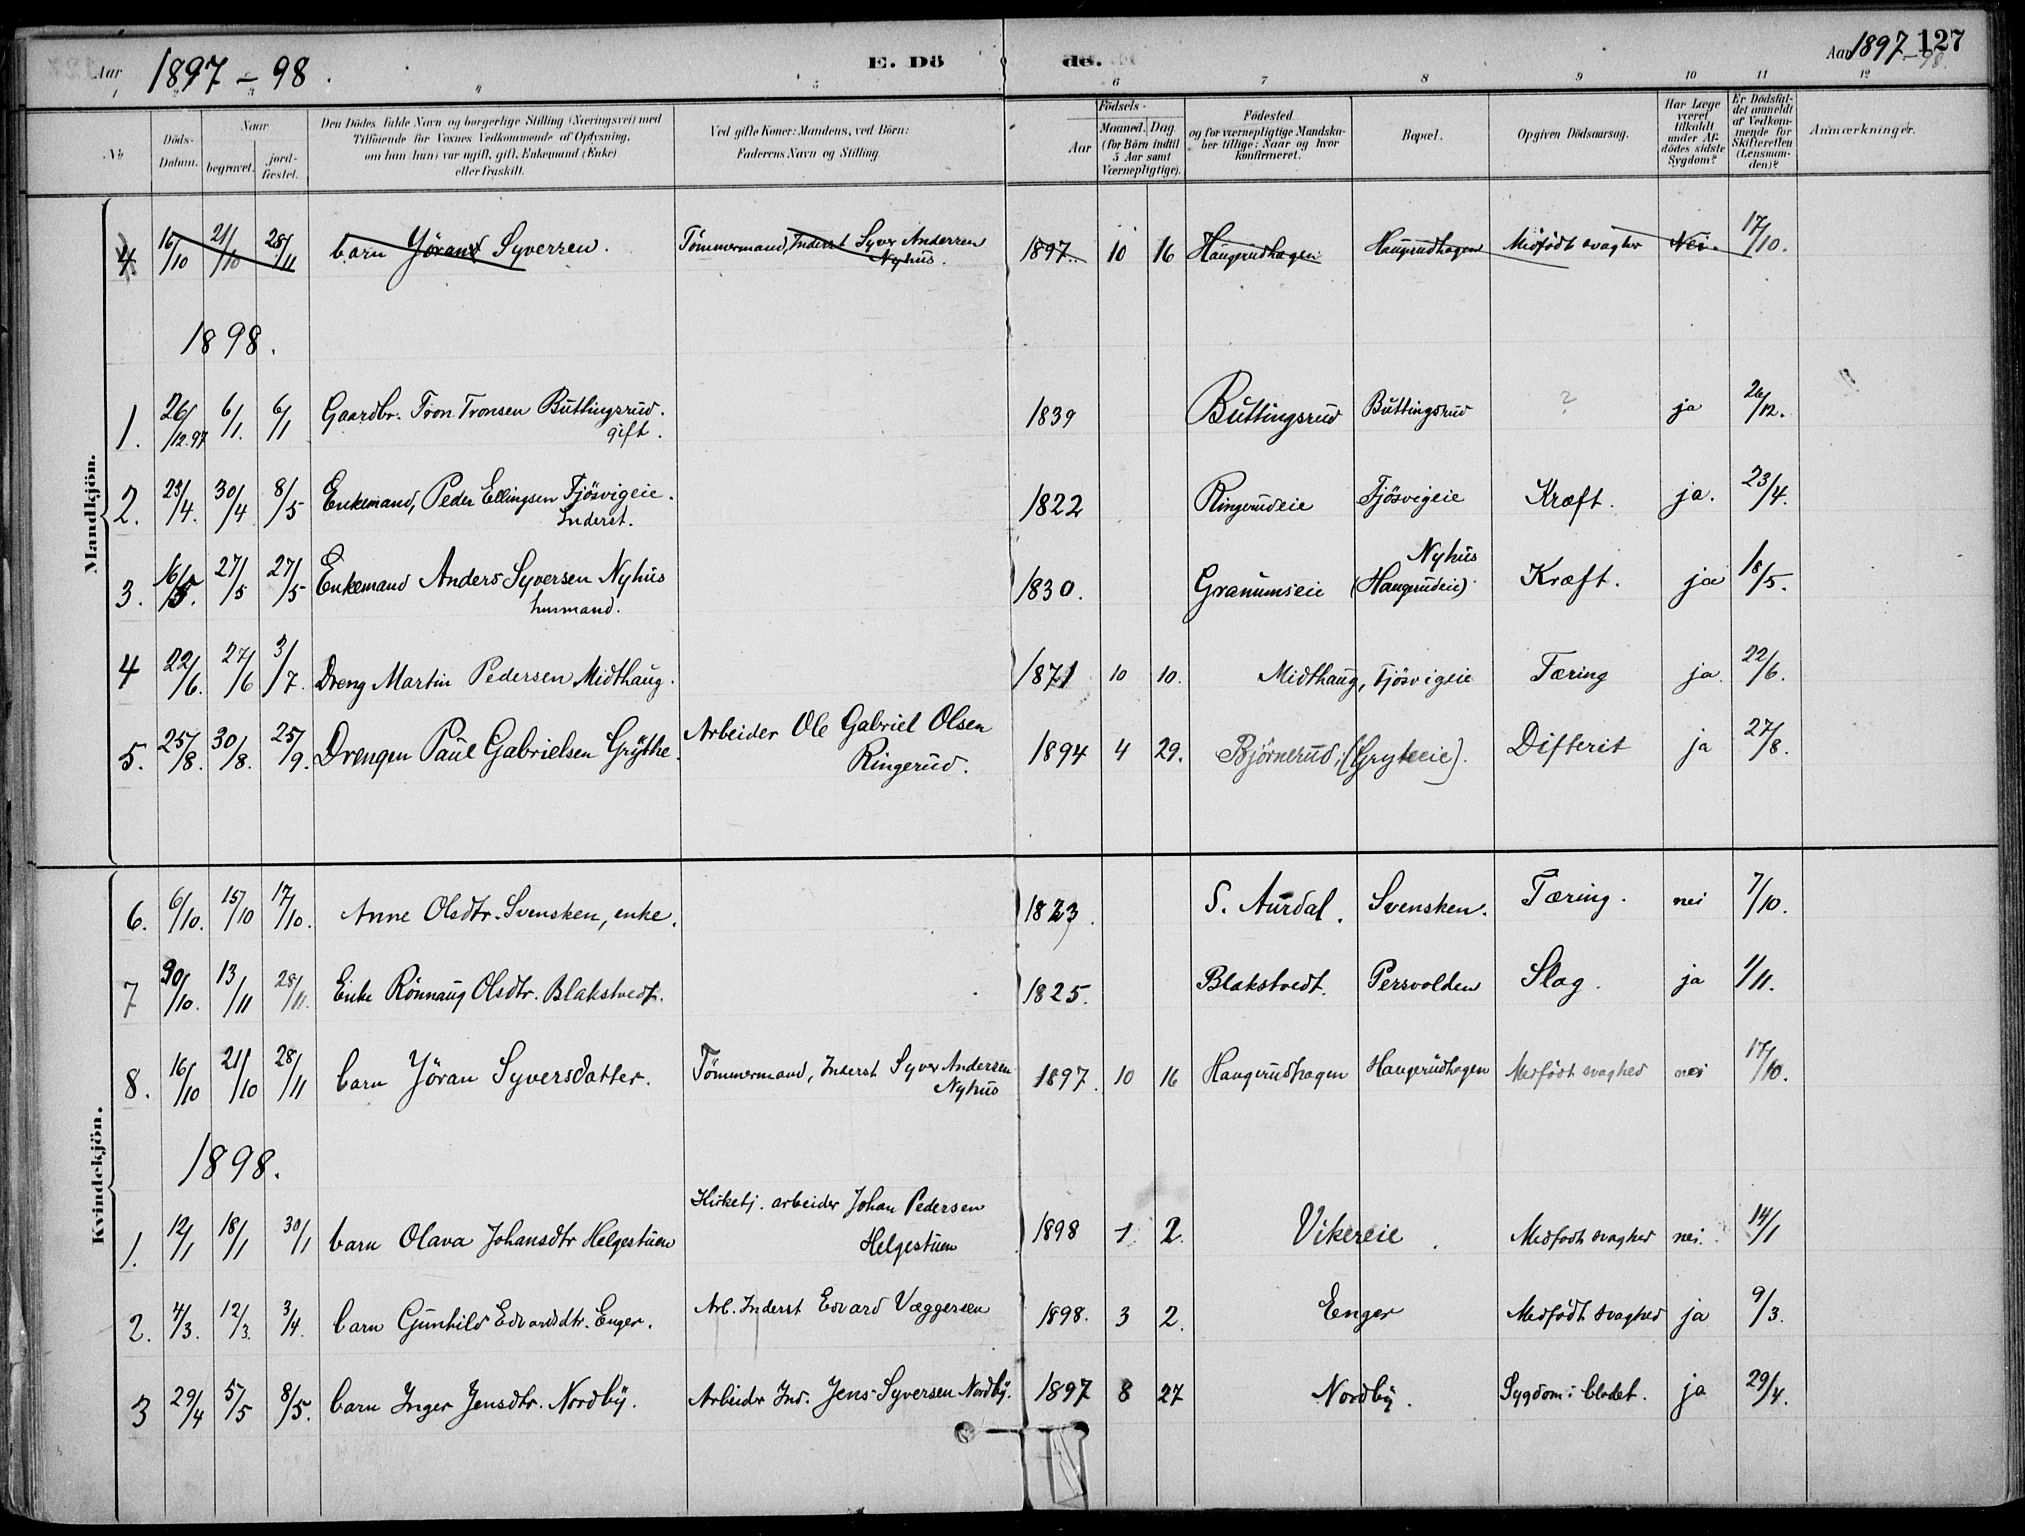 Aar 1897 – 98. E. Dö de. Aar 1897 – 98. 127
1 2 3 4 5 6 7 8 9 10 11 12
No
Döds-
Datum.
Naar
begravet.
jord-
fæstet.
Den Dödes fulde Navn og borgerlige Stilling (Næringsvei) med
Tilföiende for Voxnes Vedkommende af Oplysning,
om han (hun) var ugift, gift, Enkemand (Enke)
eller fraskilt.
Ved gifte Koner: Mandens, ved Börn:
Faderens Navn og Stilling.
Födsels-
Aar
Maaned.
Dag
(for Börn indtil
5 Aar samt
Værnepligtige).
Födested
og for værnepligtige Mandska-
ber tillige: Naar og hvor
konfirmeret.
Bopæl.
Opgiven Dödsaarsag.
Har Læge
været
tilkaldt
under Af-
dödes sidste
Sygdom?
Er Dödsfal-
det anmeldt
af Vedkom-
mende for
Skifteretten
(Lensman-
den)?
Anmærkninger.
Mandkjön.
4 16/10 21/10 28/11 barn Jöran Syversen. Tömmermand, Inderst Syver Andersen 1897. 10 16 Haugerudhagen Haugerudhagen Medfödt svaghed Nei. 17/10.
Nyhus.
1898.
1. 26/12.97 6/1. 6/1 Gaardbr. Tron Tronsen Buttingsrud. 1839 Buttingsrud Buttingsrud ? ja 26/12.
gift.
2. 23/4. 30/4 8/5 Enkemand, Peder Ellingsen Tjösvigeie. 1822 Ringerudeie Tjösvigeie Kræft. ja. 23/4.
Inderst.
Nyhus
3. 16/5. 27/5 27/5 Enkemand Anders Syversen Nyhus 1830. Granumseie (Haugerudeie) Kræft. ja 18/5.
husmand.
4 22/6. 27/6 3/7. Dreng Martin Pedersen Midthaug. 1871 10 10. Midthaug, Tjösvigeie Tæring ja. 22/6.
5. 25/8. 30/8. 25/9. Drengen Paul Gabrielsen Grythe. Arbeider Ole Gabriel Olsen 1894 4 29. Björnerud, (Gryteeie). Difterit ja 27/8.
Ringerud.
Kvindekjön.
6. 6/10. 15/10 17/10. Anne Olsdtr. Svensken, enke. 1823. S. Aurdal. Svensken. Tæring. nei 7/10.
7 30/10. 13/11 28/11. Enke Rönnaug Olsdtr. Blakstvedt. 1825. Blakstvedt. Persvolden Slag. ja 1/11.
8. 16/10 21/10 28/11 barn Jöran Syversdatter. Tömmermand, Inderst Syver Andersen 1897. 10 16 Haugerudhagen Haugerudhagen Medfödt svaghed nei 17/10.
Nyhus
1898.
1. 12/1 18/1 30/1 barn Olava Johansdtr Helgestuen Kirketj. arbeider Johan Pedersen 1898 1 2. Vikereie. Medfödt svaghed nei. 14/1
Helgestuen
2. 4/3. 12/3. 3/4. barn Gunhild Edvardsdtr. Enger. Arb. Inderst Edvard Væggersen 1898. 3 2. Enger Medfödt svaghed ja 9/3.
3 29/4 5/5 8/5. barn Inger Jensdtr. Nordby. Arbeider Ind. Jens Syversen Nordby. 1897 8 27 Nordby. Sygdom i blodet. ja 29/4.